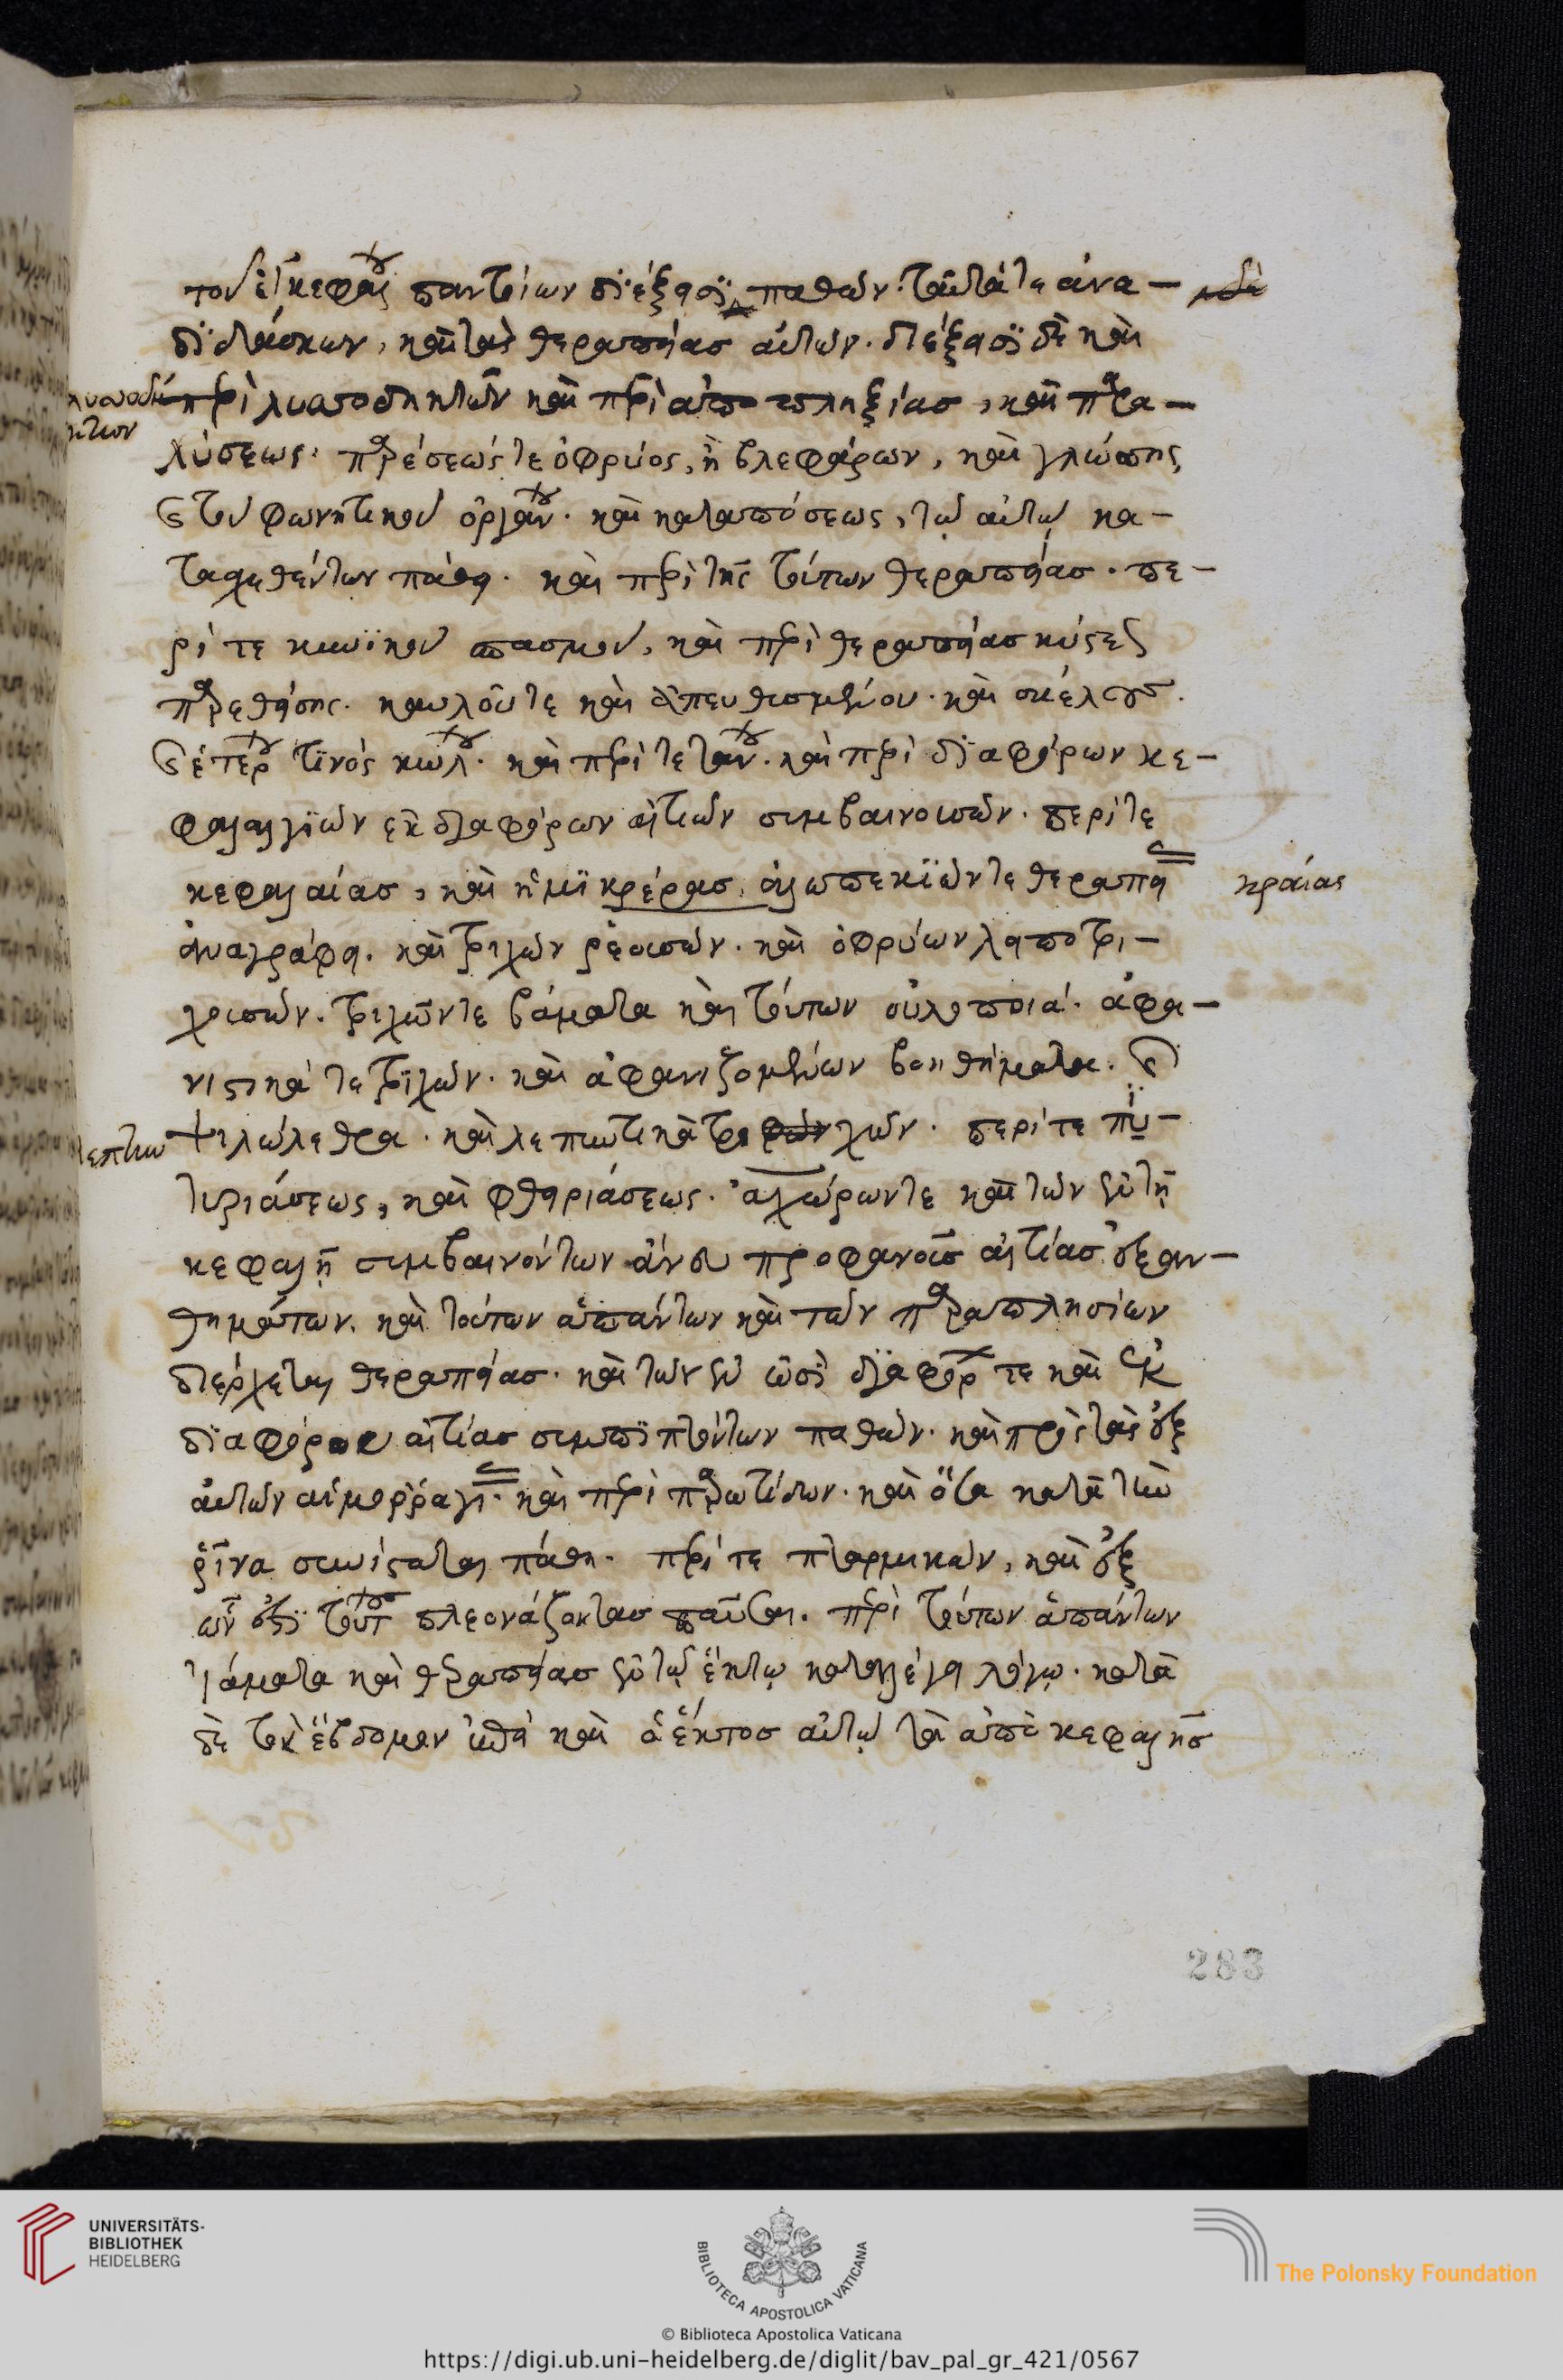 τοῦ ἐγκεφάλου παντοίων διέξεισι παθῶν. ταῦτά τε ἀνα-
διδάσκων, καὶ τὰς θεραπείας αὐτῶν. διέξεισι δὲ καὶ
περὶ καὶ περὶ ἀποπληξίας, καὶ παρα-
λύσεως. παρέσεώς τε ὀφρύος, ἢ βλεφάρων, καὶ γλώσσης
καὶ τοῦ φωνητικοῦ ὀργάνου. καὶ καταπόσεως, τῷ αὐτῷ κα-
τασχεθέντων πάθει. καὶ περὶ τῆς τούτων θεραπείας. πε-
ρί τε κυνικοῦ σπασμοῦ, καὶ περὶ θεραπείας κύστεως
παρεθείσης. καυλοῦ τε καὶ ἀπευθυσμένου. καὶ σκέλους.
καὶ ἑτέρου τινὸς κώλου. καὶ περὶ τετάνου. καὶ περὶ διαφόρων κε-
φαλαλγιῶν ἐκ διαφόρων αἰτιῶν συμβαινουσῶν. περί τε
κεφαλαίας, καὶ ἡμικρέρας. ἀλωπεκιῶν τε θεραπείας
κραίας
ἀναγράφει. καὶ τριχῶν ῥεουσῶν. καὶ ὀφρύων λειποτρι-
χουσῶν. τριχῶν τε βάματα καὶ τούτων οὐλοποιά. ἀφα-
νιστικά τε τριχῶν. καὶ ἀφανιζομένων βοηθήματα. καὶ
ψιλώθεθρα. καὶ λεπτυντικὰ τριχῶν. περί τε πι-
τυριάσεως, καὶ φθειριάσεως. ἀχώρων τε καὶ τῶν ἐν τῇ
κεφαλῇ συμβαινόντων ἄνευ προφανοῦς αἰτίας ἐξαν-
θημάτων. καὶ τούτων ἁπάντων καὶ τῶν παραπλησίων
διέρχεται θεραπείας. καὶ τῶν ἐν ὠσὶ διαφόρων τε καὶ ἐκ
διαφόρου αἰτίας συμπιπτόντων παθῶν. καὶ πρὸς τὰς ἐξ
αὐτῶν αἱμορραγίας. καὶ περὶ παρωτίδων. καὶ ὅσα κατὰ τὴν
ῥῖνα συνίσταται πάθη. περί τε πταρμικῶν, καὶ ἐξ
ὧν ἐστὶ τούτους πλεονάζοντας παῦσαι. περὶ τούτων ἁπάντων
ἰάματα καὶ θεραπείας ἐν τῷ ἕκτῳ καταλέγει λόγῳ. κατὰ
δὲ τὸν ἕβδομον καὶ ὁ ἕκτος αὐτῷ τὰ ἀπὸ κεφαλῆς
283
UNIVERSITÄTS-
BIBLIOTHEK
HEIDELBERG
BIBLIOTECA APOSTOLICA VATICANA
The Polonsky Foundation
© Biblioteca Apostolica Vaticana
https://digi.ub.uni-heidelberg.de/diglit/bav_pal_gr_421/0567